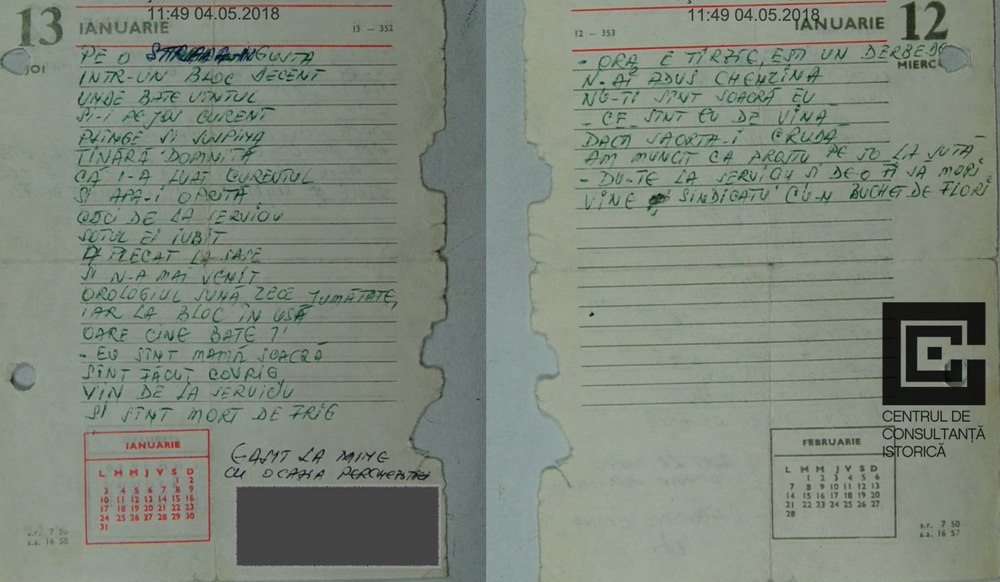 11:49 04.05.2018
13 IANUARIE 13 – 352
JOI
PE O STRADA INGUSTA
INTR-UN BLOC DECENT
UNDE BATE VINTUL
SI-I PE JOS CURENT
PLINGE SI SUSPINA
TINĂRĂ DOMNITĂ
CĂ I-A LUAT CURENTUL
SI APA-I OPRITĂ
CĂCI DE LA SERVICIU
SOTUL EI IUBIT
A PLECAT LA SASE
SI N-A MAI VENIT
OROLOGIUL SUNĂ ZECE JUMĂTATE,
IAR LA BLOC IN USĂ
OARE CINE BATE ?!
- EU SÎNT MAMĂ SOACRĂ
SÎNT FĂCUT COVRIG
VIN DE LA SERVICIU
SI SÎNT MORT DE FRIG
IANUARIE
L M M J V S D
1 2
3 4 5 6 7 8 9
10 11 12 13 14 15 16
17 18 19 20 21 22 23
24 25 26 27 28 29 30
31
GĂSIT LA MINE
CU OCAZIA PERCHEZITIEI
s.r. 7 50
s.a. 16 58
11:49 04.05.2018
12 – 353 IANUARIE 12
MIERC
- ORA E TÎRZIE, ESTI UN DERBEDEU
N-AI ADUS CHENZINA
NU-TI SÎNT SOACRĂ EU
- CE SÎNT EU DE VINA
DACĂ SOARTA-I CRUDĂ
AM MUNCIT CA PROSTU PE 50 LA SUTA
- DU-TE LA SERVICIU SI DE-O FI SA MORI
VINE SINDICATU CU-N BUCHET DE FLORI
FEBRUARIE
L M M J V S D
1 2 3 4 5 6
7 8 9 10 11 12 13
14 15 16 17 18 19 20
21 22 23 24 25 26 27
28
s.r. 7 50
s.a. 16 57
CENTRUL DE
CONSULTANȚĂ
ISTORICĂ